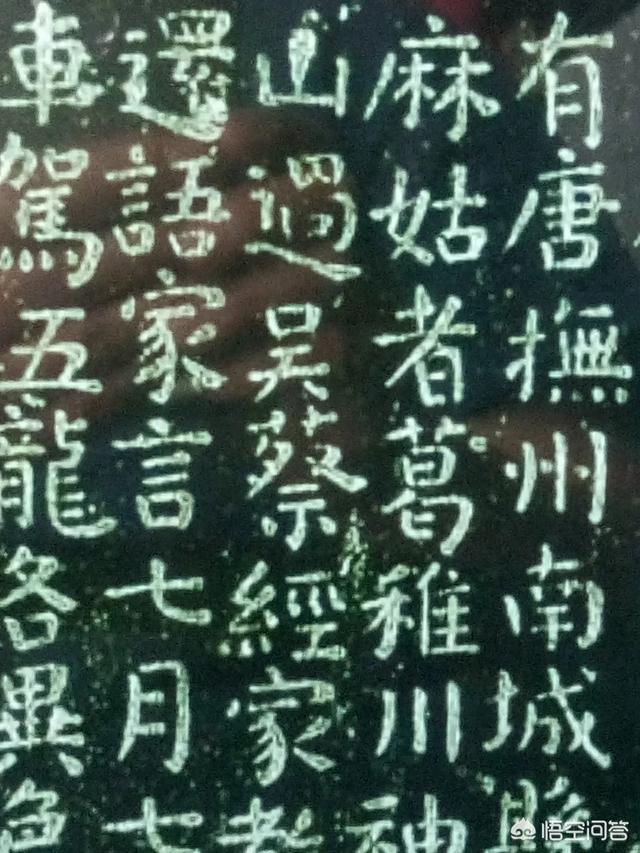 有唐撫州南城縣
麻姑者葛稚川神
山過吳蔡經家教
還語家言七月七
車駕五龍各異色
悟空问答